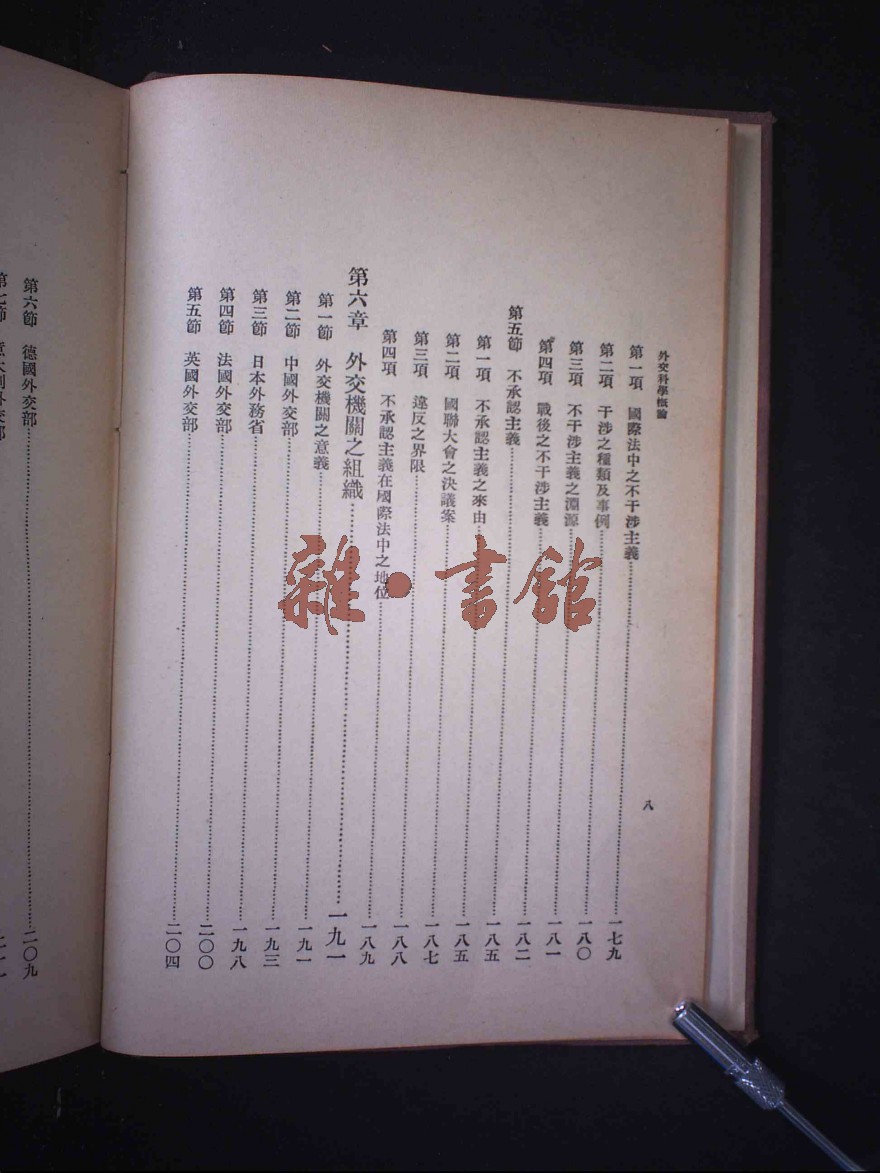 外交科學概論
八
第一項　國際法中之不干涉主義……一七九
第二項　干涉之種類及事例……一八〇
第三項　不干涉主義之淵源……一八一
第四項　戰後之不干涉主義……一八二
第五節　不承認主義……一八五
第一項　不承認主義之來由……一八五
第二項　國聯大會之決議案……一八七
第三項　違反之界限……一八八
第四項　不承認主義在國際法中之地位……一八九
第六章　外交機關之組織……一九一
第一節　外交機關之意義……一九一
第二節　中國外交部……一九三
第三節　日本外務省……一九八
第四節　法國外交部……二〇〇
第五節　英國外交部……二〇四
第六節　德國外交部……二〇九
第七節　意大利外交部
雜·書館